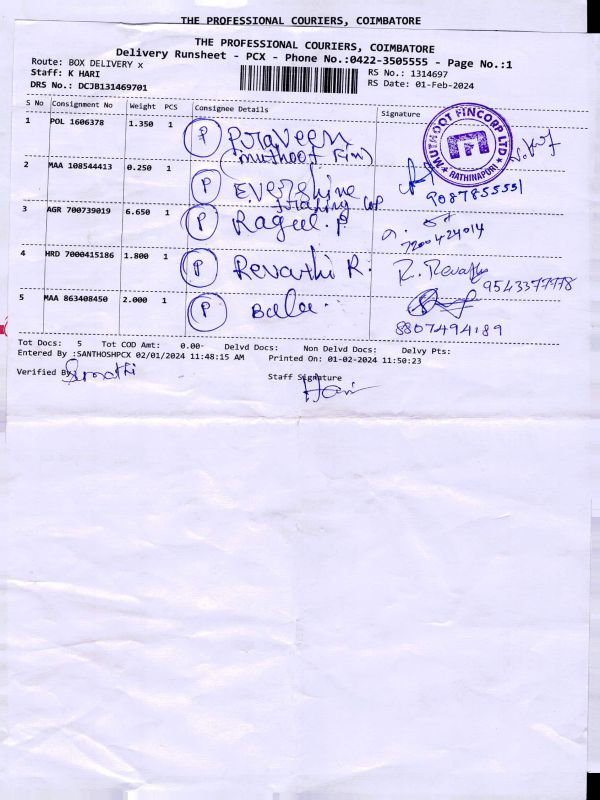 THE PROFESSIONAL COURIERS, COIMBATORE
THE PROFESSIONAL COURIERS, COIMBATORE
Delivery Runsheet - PCX - Phone No.:0422-3505555 - Page No.:1
Route: BOX DELIVERY x
Staff: K HARI
DRS No.: DCJB131469701
RS No.: 1314697
RS Date: 01-Feb-2024
S No Consignment No Weight PCS Consignee Details Signature
1 POL 1606378 1.350 1 P Praveen
(muthoot Fin)
MUTHOOT FINCORP LTD
RATHINAPURI
2 MAA 108544413 0.250 1 P Evershine
9087855551
3 AGR 700739019 6.650 1 P Rageel. P
7200424014
4 HRD 7000415186 1.800 1 P Revathi R. R. Revathi
5 MAA 863408450 2.000 1 P Bala.
Tot Docs: 5 Tot COD Amt: 0.00- Delvd Docs: Non Delvd Docs: Delvy Pts:
Entered By :SANTHOSHPCX 02/01/2024 11:48:15 AM Printed On: 01-02-2024 11:50:23
Verified By
Staff Signature
Hari